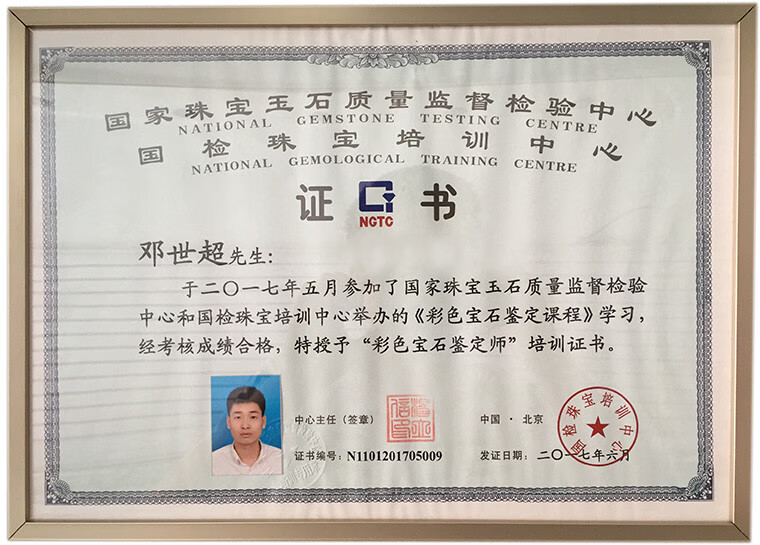 国家珠宝玉石质量监督检验中心
NATIONAL GEMSTONE TESTING CENTRE
国检珠宝培训中心
NATIONAL GEMOLOGICAL TRAINING CENTRE
证 NGTC 书
邓世超先生：
于二〇一七年五月参加了国家珠宝玉石质量监督检验
中心和国检珠宝培训中心举办的《彩色宝石鉴定课程》学习，
经考核成绩合格，特授予“彩色宝石鉴定师”培训证书。
中心主任（签章）
中国·北京
国检珠宝培训中心
证书编号：N1101201705009
发证日期：二〇一七年六月